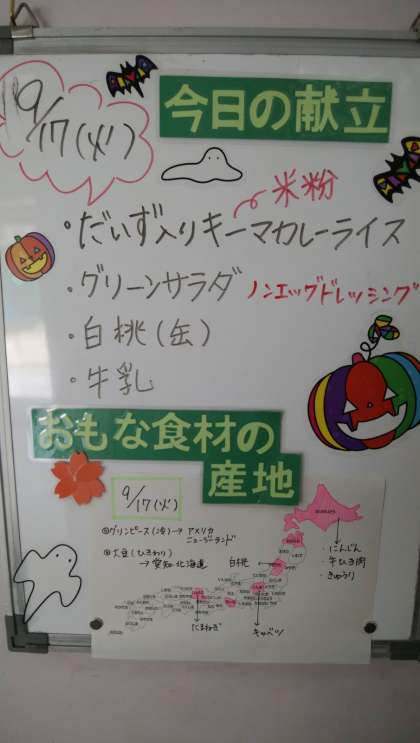 9/17(火)
今日の献立
米粉
・だいず入りキーマカレーライス
・グリーンサラダ ノンエッグドレッシング
・白桃(缶)
・牛乳
おもな食材の産地
9/17(火)
グリンピース(冷)→アメリカ
ニュージーランド
大豆(ひきわり)
→愛知 北海道
白桃
・にんじん
・牛ひき肉
・きゅうり
たまねぎ
キャベツ